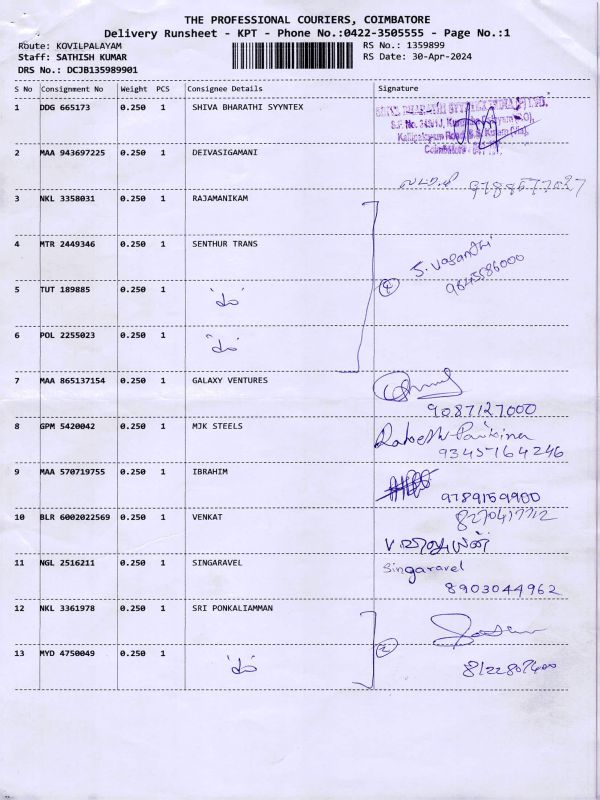 THE PROFESSIONAL COURIERS, COIMBATORE
Delivery Runsheet - KPT - Phone No.:0422-3505555 - Page No.:1
Route: KOVILPALAYAM RS No.: 1359899
Staff: SATHISH KUMAR RS Date: 30-Apr-2024
DRS No.: DCJB135989901
S No Consignment No Weight PCS Consignee Details Signature
1 DDG 665173 0.250 1 SHIVA BHARATHI SYYNTEX
2 MAA 943697225 0.250 1 DEIVASIGAMANI
3 NKL 3358031 0.250 1 RAJAMANIKAM
4 MTR 2449346 0.250 1 SENTHUR TRANS
S. Vasanthi
5 TUT 189885 0.250 1
6 POL 2255023 0.250 1
7 MAA 865137154 0.250 1 GALAXY VENTURES
9087127000
8 GPM 5420042 0.250 1 MJK STEELS
9345164246
9 MAA 570719755 0.250 1 IBRAHIM
9789159900
10 BLR 6002022569 0.250 1 VENKAT
11 NGL 2516211 0.250 1 SINGARAVEL Singaravel
8903044962
12 NKL 3361978 0.250 1 SRI PONKALIAMMAN
13 MYD 4750049 0.250 1